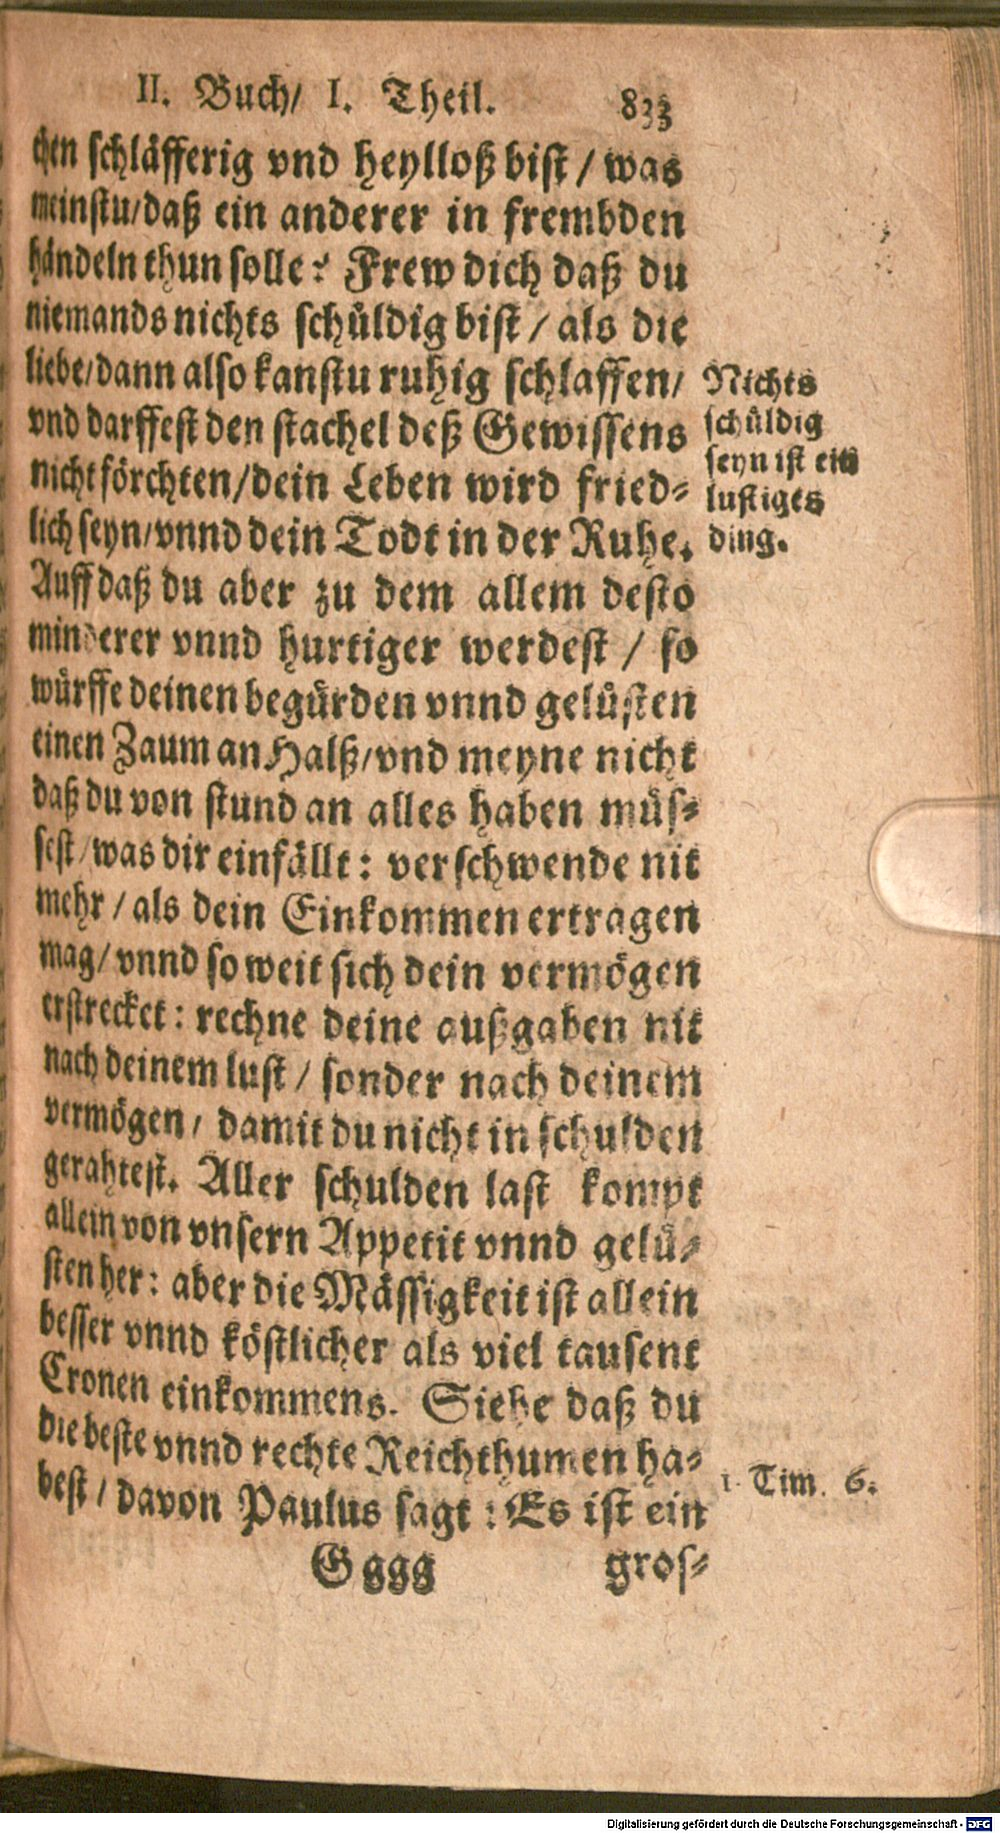 II. Buch/ I. Theil. 833
chen schläfferig vnd heylloß bist / was
meinstu/daß ein anderer in frembden
händeln thun solle? Frew dich daß du
niemands nichts schůldig bist / als die
liebe/dann also kanstu ruhig schlaffen/
vnd darffest den stachel deß Gewissens
nicht förchten/dein Leben wird fried-
lich seyn/vnnd dein Todt in der Ruhe.
Nichts
schůldig
seyn ist ein
lustiges
ding.
Auff daß du aber zu dem allem desto
minderer vnnd hurtiger werdest / so
würffe deinen begürden vnnd gelůsten
einen Zaum an Halß/vnd meyne nicht
daß du von stund an alles haben můs-
sest/was dir einfällt: verschwende nit
mehr / als dein Einkommen ertragen
mag/ vnnd so weit sich dein vermögen
erstrecket: rechne deine außgaben nit
nach deinem lust / sonder nach deinem
vermögen/ damit du nicht in schulden
gerahtest. Aller schulden last kompt
allein von vnsern Appetit vnnd gelů-
sten her: aber die Mässigkeit ist allein
besser vnnd köstlicher als viel tausent
Cronen einkommens. Siehe daß du
die beste vnnd rechte Reichthumen ha-
best / davon Paulus sagt: Es ist ein
1. Tim. 6.
Gggg gros-
Digitalisierung gefördert durch die Deutsche Forschungsgemeinschaft - DFG